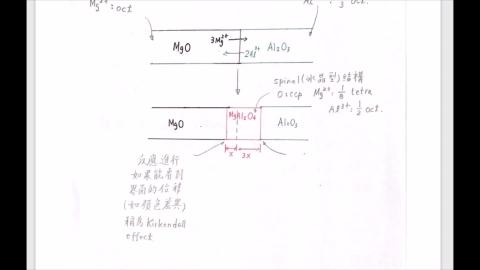 Mg²⁺: oct
3 oct.
3Mg²⁺
MgO
Al₂O₃
2Al³⁺
spinal(冰晶型)結構
O:ccp Mg²⁺: 1/8 tetra
Al³⁺: 1/2 oct.
MgO
MgAl₂O₄
Al₂O₃
x
3x
反應進行
如果能看到
界面的位移
(如顏色差異)
稱為Kirkendall
effect